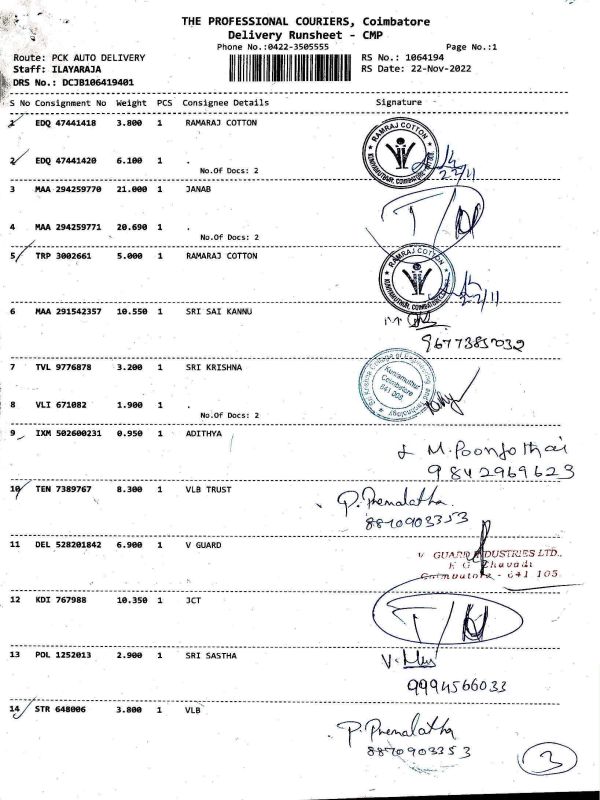 THE PROFESSIONAL COURIERS, Coimbatore
Delivery Runsheet - CMP
Phone No.:0422-3505555
Page No.:1
Route: PCK AUTO DELIVERY
RS No.: 1064194
Staff: ILAYARAJA
RS Date: 22-Nov-2022
DRS No.: DCJB106419401
S No Consignment No Weight PCS Consignee Details Signature
1 EDQ 47441418 3.800 1 RAMARAJ COTTON
RAMRAJ COTTON
2 EDQ 47441420 6.100 1 .
22/11
No.Of Docs: 2
3 MAA 294259770 21.000 1 JANAB
4 MAA 294259771 20.690 1 .
No.Of Docs: 2
5 TRP 3002661 5.000 1 RAMARAJ COTTON
RAMRAJ COTTON
22/11
6 MAA 291542357 10.550 1 SRI SAI KANNU
9677385032
7 TVL 9776878 3.200 1 SRI KRISHNA
Sri Krishna College of Engineering and Technology
Kuniamuthur
Coimbatore
641 008
8 VLI 671082 1.900 1 .
No.Of Docs: 2
9 IXM 502600231 0.950 1 ADITHYA
M. Poongothai
9842969623
10 TEN 7389767 8.300 1 VLB TRUST
P. Premalatha
8870903353
11 DEL 528201842 6.900 1 V GUARD
V GUARD INDUSTRIES LTD.,
K G Chavadi
Coimbatore - 641 105
12 KDI 767988 10.350 1 JCT
13 POL 1252013 2.900 1 SRI SASTHA
9994566033
14 STR 648006 3.800 1 VLB
P. Premalatha
8870903353
3